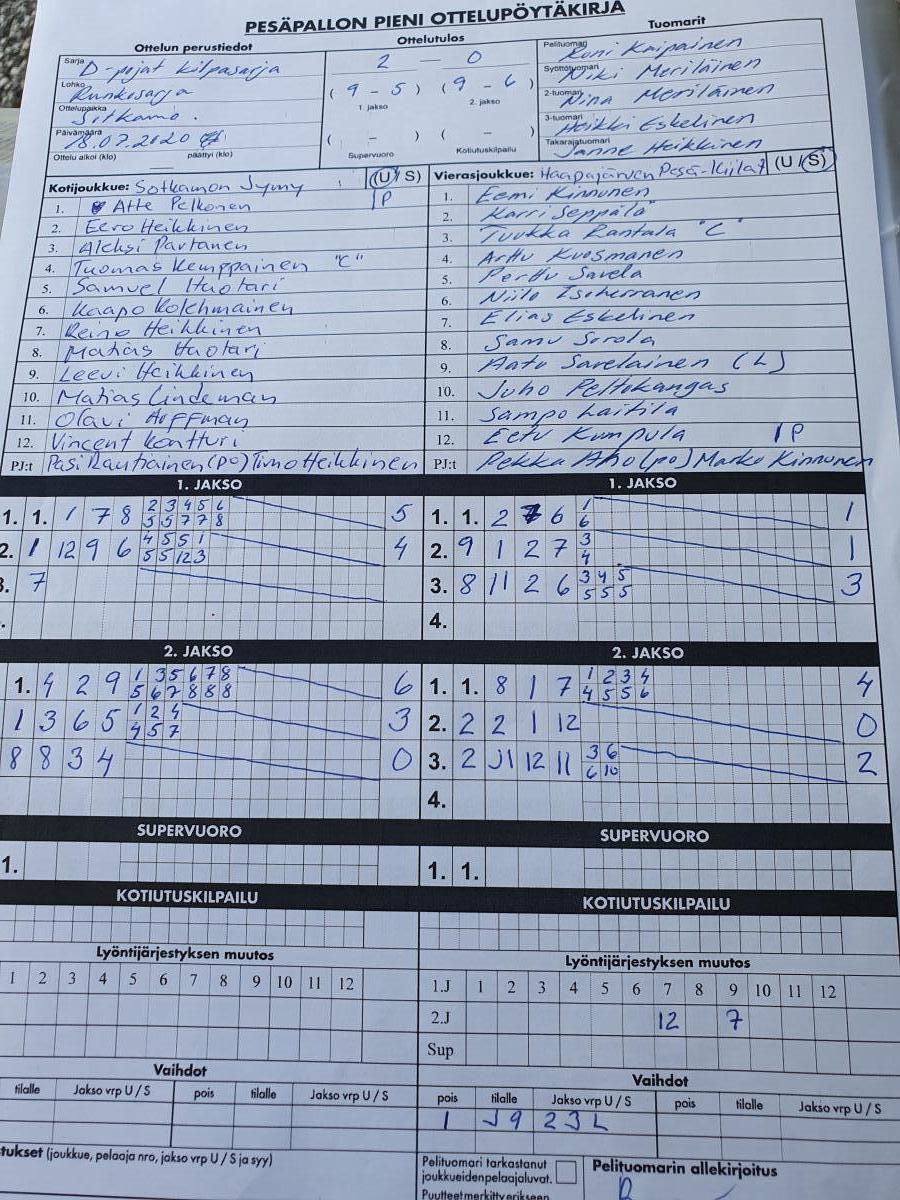 PESÄPALLON PIENI OTTELUPÖYTÄKIRJA
Ottelun perustiedot Ottelutulos Tuomarit
Sarja D-pojat kilpasarja
Lohko Runkosarja
Ottelupaikka Sotkamo
Päivämäärä 18.07.2020
Ottelu alkoi (klo) päättyi (klo)
2 — 0
(9 - 5) (9 - 6)
1. jakso 2. jakso
( - ) ( - )
Supervuoro Kotiutuskilpailu
Pelituomari Roni Kaipainen
Syöttötuomari Niki Meriläinen
2-tuomari Nina Meriläinen
3-tuomari Heikki Eskelinen
Takarajatuomari Janne Heikkinen
Kotijoukkue: Sotkamon Jymy (U / S)
1. Atte Pelkonen 1P
2. Eero Heikkinen
3. Aleksi Partanen
4. Tuomas Kemppainen "C"
5. Samuel Huotari
6. Kaapo Kolehmainen
7. Reino Heikkinen
8. Matias Huotari
9. Leevi Heikkinen
10. Matias Lindeman
11. Olavi Hoffman
12. Vincent Kontturi
PJ:t Pasi Rautiainen (po) Timo Heikkinen
Vierasjoukkue: Haapajärven Pesä-Kiilat (U / S)
1. Eemi Kinnunen
2. Karri Seppälä
3. Tuukka Rantala "C"
4. Arttu Kuosmanen
5. Perttu Savela
6. Niilo Isoherranen
7. Elias Eskelinen
8. Samu Sorola
9. Aatu Savelainen (L)
10. Juho Peltokangas
11. Sampo Laitila
12. Eetu Kumpula 1P
PJ:t Pekka Aho (po) Marko Kinnunen
1. JAKSO
1. 1. 1 7 8 2 3 4 5 6 5
5 5 7 7 8
2. 1 12 9 6 4 5 5 1 4
5 5 12 3
3. 7
1. JAKSO
1. 1. 2 6 1 1
6
2. 9 1 2 7 3 1
4
3. 8 11 2 6 3 4 5 3
5 5 5
4.
2. JAKSO
1. 4 2 9 1 3 5 6 7 8 6
5 6 7 8 8 8
1 3 6 5 1 2 4 3
4 5 7
8 8 3 4 0
2. JAKSO
1. 1. 8 1 7 1 2 3 4 4
4 5 5 6
2. 2 2 1 12 0
3. 2 J1 12 11 3 6 2
6 10
4.
SUPERVUORO
1.
SUPERVUORO
1. 1.
KOTIUTUSKILPAILU
KOTIUTUSKILPAILU
Lyöntijärjestyksen muutos
1 2 3 4 5 6 7 8 9 10 11 12
Lyöntijärjestyksen muutos
1.J 1 2 3 4 5 6 7 8 9 10 11 12
2.J 12 7
Sup
Vaihdot
tilalle Jakso vrp U / S pois tilalle Jakso vrp U / S
Vaihdot
pois tilalle Jakso vrp U / S pois tilalle Jakso vrp U / S
1 J9 23L
tukset (joukkue, pelaaja nro, jakso vrp U / S ja syy)
Pelituomari tarkastanut
joukkueidenpelaajaluvat.
Puutteet merkitty erikseen
Pelituomarin allekirjoitus